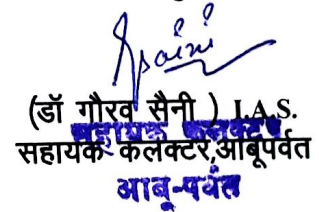 Spaini
(डॉ गौरव सैनी ) I.A.S.
सहायक कलक्टर
सहायक कलक्टर,आबूपर्वत
आबू-पर्वत